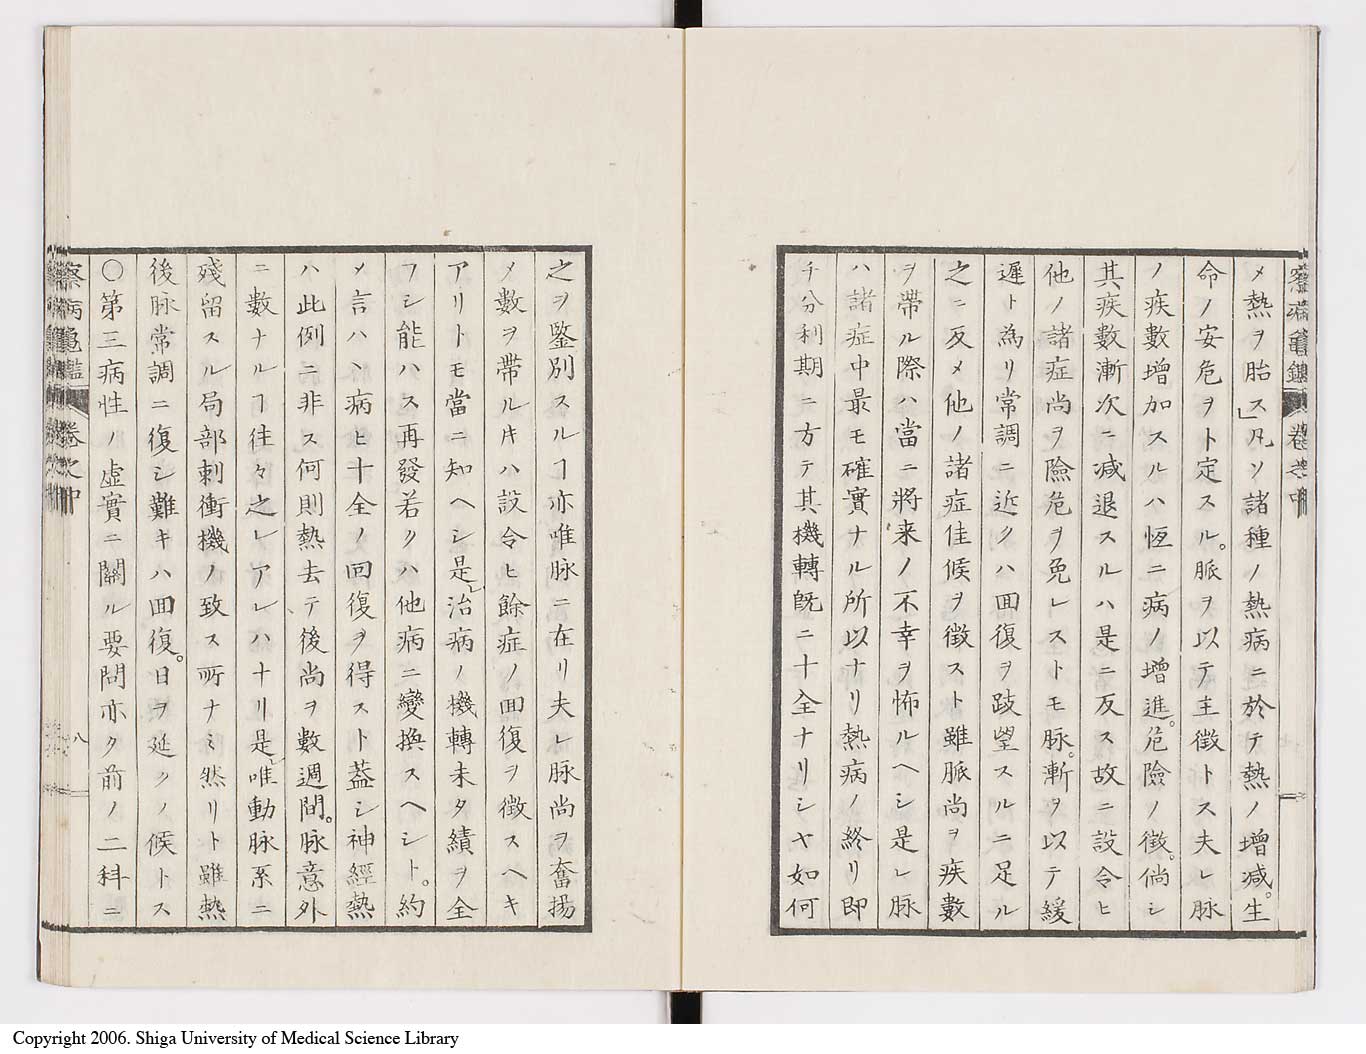 察病亀鑑 卷之中
メ熱ヲ胎ス」凡ソ諸種ノ熱病ニ於テ熱ノ増減。生
命ノ安危ヲト定スル。脈ヲ以テ主徴トス夫レ脉
ノ疾數増加スルハ恆ニ病ノ増進。危險ノ徴。倘シ
其疾數漸次ニ减退スルハ是ニ反ス故ニ設令ヒ
他ノ諸症尚ヲ險危ヲ免レストモ脉。漸ヲ以テ緩
遲ト為リ常調ニ近クハ囬復ヲ跂望スルニ足ル
之ニ反メ他ノ諸症佳候ヲ徴スト雖脈尚ヲ疾數
ヲ帶ル際ハ當ニ將来ノ不幸ヲ怖ルヘシ是レ脉
ハ諸症中最モ確實ナル所以ナリ熱病ノ終リ即
チ分利期ニ方テ其機轉既ニ十全ナリシヤ如何
之ヲ鑒別スルヿ亦唯脉ニ在リ夫レ脉尚ヲ奮揚
メ數ヲ帶ル𪜈ハ設令ヒ餘症ノ囬復ヲ徴スヘキ
アリトモ當ニ知ヘシ是レ治病ノ機轉未タ績ヲ全
フシ能ハス再發若クハ他病ニ變換スヘシト。約
メ言ハヽ病ヒ十全ノ囬復ヲ得スト葢シ神經熱
ハ此例ニ非ス何則熱去テ後尚ヲ數週間。脉意外
ニ數ナルヿ往々之レアレハナリ是レ唯動脉系ニ
殘留スル局部刺衝機ノ致ス所ナミ然リト雖熱
後脉常調ニ復シ難キハ囬復。日ヲ延クノ候トス
〇第三病性ノ虚實ニ關ル要問亦タ前ノ二科ニ
察病亀鑑 卷之中
八
Copyright 2006. Shiga University of Medical Science Library